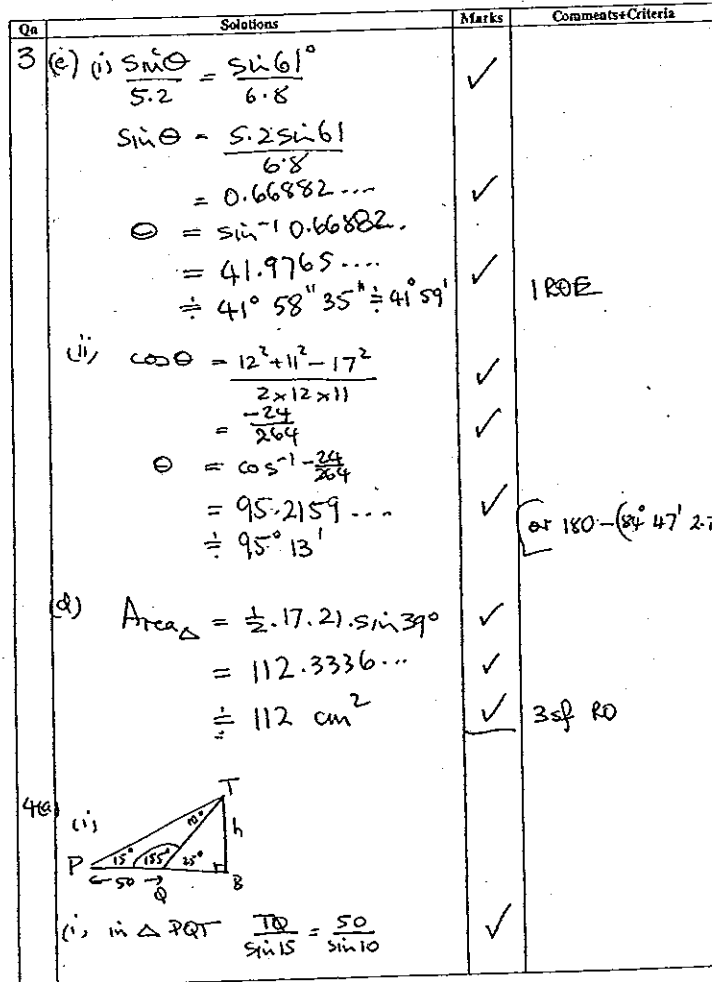 Qn Solutions Marks Comments+Criteria
3 (c) (i) sinθ/5.2 = sin61°/6.8 ✓
sinθ = 5.2sin61/6.8
= 0.66882.... ✓
θ = sin⁻¹ 0.66882.
= 41.9765.... ✓
≑ 41° 58" 35" ≑ 41° 59' 1 ROE
(ii) cosθ = 12²+11²-17²/2×12×11 ✓
= -24/264 ✓
θ = cos⁻¹ -24/264
= 95.2159... ✓
≑ 95° 13' or 180-(84° 47' 2.7
(d) Area△ = ½.17.21.sin39° ✓
= 112.3336... ✓
≑ 112 cm² ✓ 3sf RO
4(a) (i)
T
10° h
P 15° 155° 25°
← 50 → Q B
(i) in △ PQT TQ/sin15 = 50/sin10 ✓